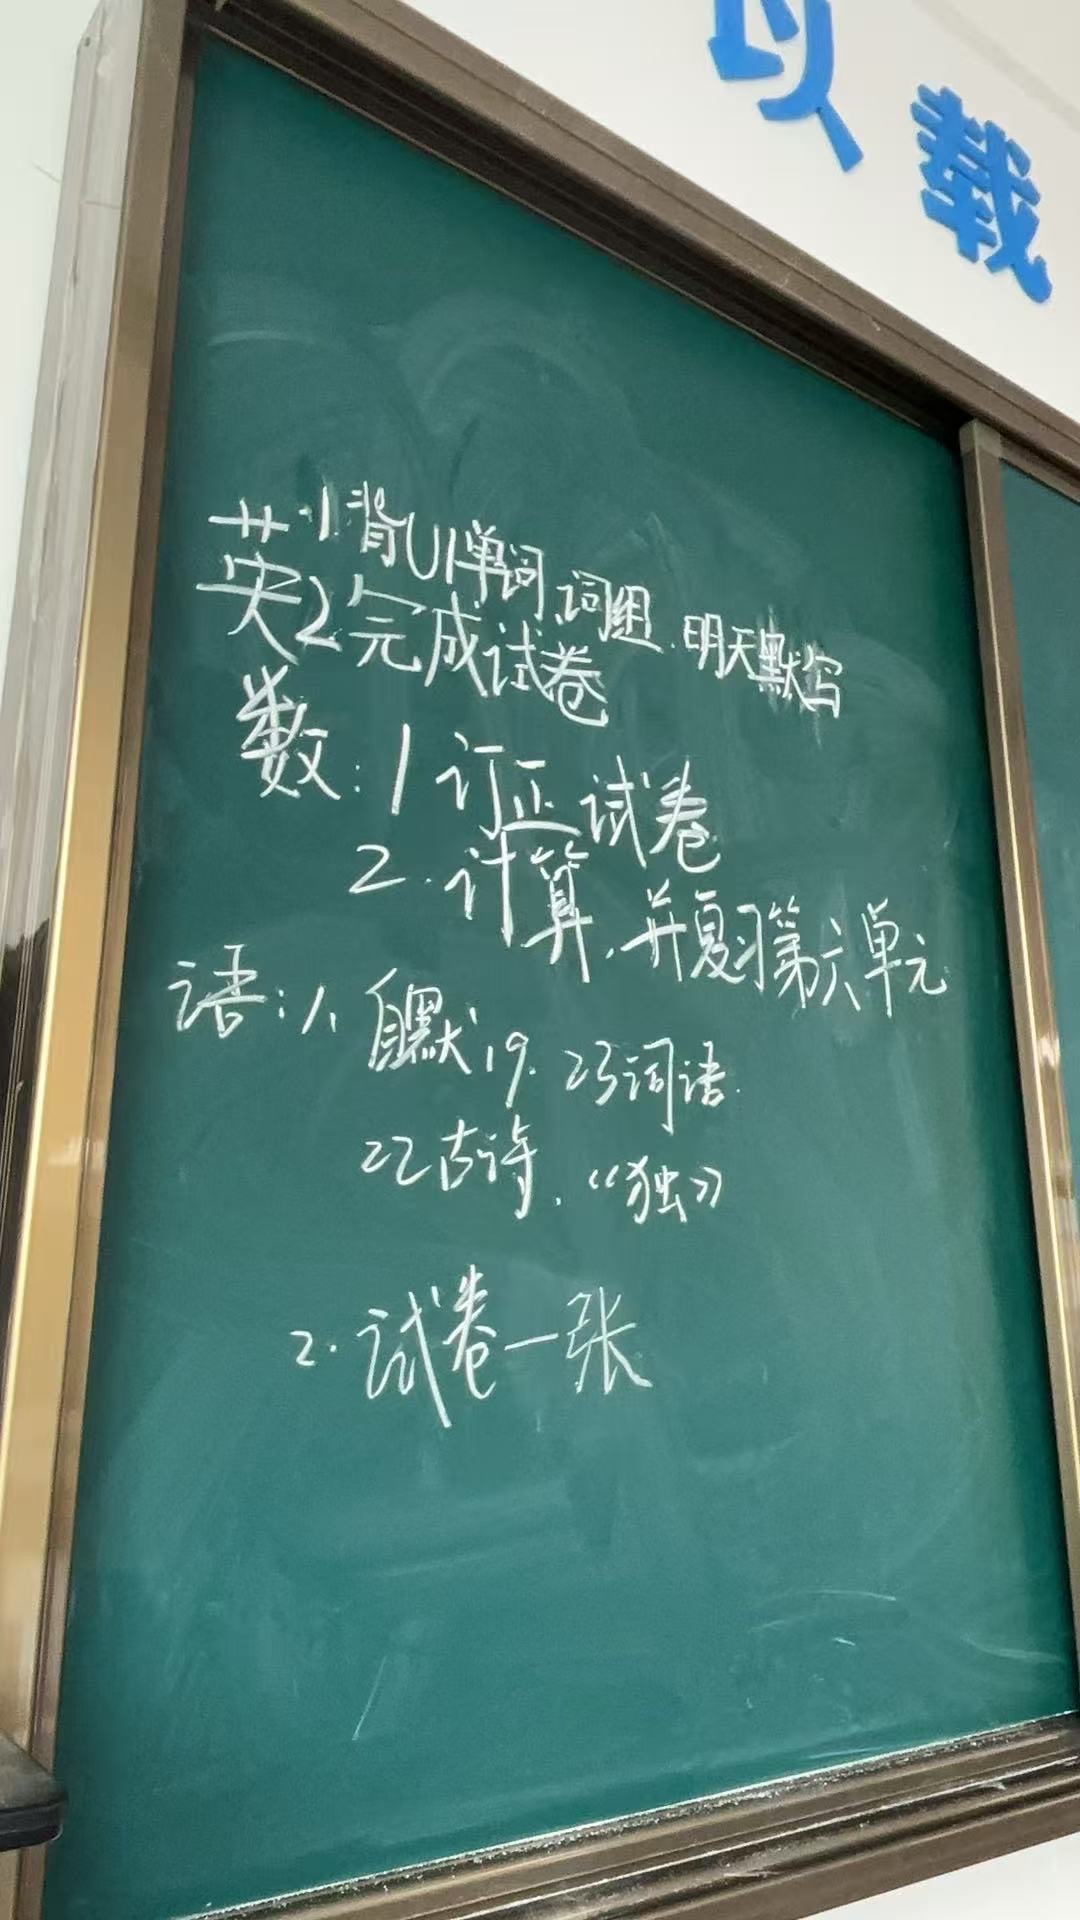 以载
英:1.背U1单词、词组.明天默写
2完成试卷
数:1 订正试卷
2.计算,并复习第六单元
语:1、自默19.23词语.
22古诗.《独》
2.试卷一张